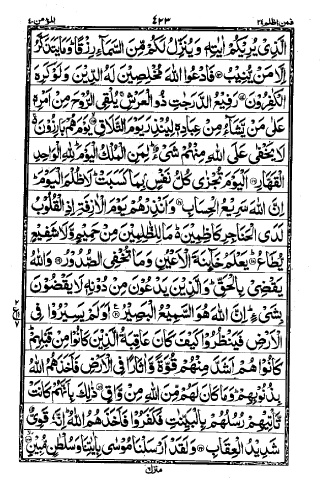 فمن اظلم ٢٤ ٤٢٣ المؤمن ٤٠
الَّذِىْ يُرِيْكُمْ اٰيٰتِهٖ وَيُنَزِّلُ لَكُمْ مِّنَ السَّمَآءِ رِزْقًا ؕ وَمَا يَتَذَكَّرُ
اِلَّا مَنْ يُّنِيْبُ ۝ فَادْعُوا اللّٰهَ مُخْلِصِيْنَ لَهُ الدِّيْنَ وَلَوْ كَرِهَ
الْكٰفِرُوْنَ ۝ رَفِيْعُ الدَّرَجٰتِ ذُو الْعَرْشِ ۚ يُلْقِى الرُّوْحَ مِنْ اَمْرِهٖ
عَلٰى مَنْ يَّشَآءُ مِنْ عِبَادِهٖ لِيُنْذِرَ يَوْمَ التَّلَاقِ ۝ يَوْمَ هُمْ بَارِزُوْنَ ۚ
لَا يَخْفٰى عَلَى اللّٰهِ مِنْهُمْ شَىْءٌ ؕ لِمَنِ الْمُلْكُ الْيَوْمَ ؕ لِلّٰهِ الْوَاحِدِ
الْقَهَّارِ ۝ اَلْيَوْمَ تُجْزٰى كُلُّ نَفْسٍۭ بِمَا كَسَبَتْ ؕ لَا ظُلْمَ الْيَوْمَ ؕ
اِنَّ اللّٰهَ سَرِيْعُ الْحِسَابِ ۝ وَاَنْذِرْهُمْ يَوْمَ الْاٰزِفَةِ اِذِ الْقُلُوْبُ
لَدَى الْحَنَاجِرِ كٰظِمِيْنَ ؕ مَا لِلظّٰلِمِيْنَ مِنْ حَمِيْمٍ وَّلَا شَفِيْعٍ
يُّطَاعُ ۝ يَعْلَمُ خَآئِنَةَ الْاَعْيُنِ وَمَا تُخْفِى الصُّدُوْرُ ۝ وَاللّٰهُ
يَقْضِىْ بِالْحَقِّ ؕ وَالَّذِيْنَ يَدْعُوْنَ مِنْ دُوْنِهٖ لَا يَقْضُوْنَ
بِشَىْءٍ ؕ اِنَّ اللّٰهَ هُوَ السَّمِيْعُ الْبَصِيْرُ ۝ اَوَلَمْ يَسِيْرُوْا فِى
الْاَرْضِ فَيَنْظُرُوْا كَيْفَ كَانَ عَاقِبَةُ الَّذِيْنَ كَانُوْا مِنْ قَبْلِهِمْ ؕ
كَانُوْا هُمْ اَشَدَّ مِنْهُمْ قُوَّةً وَّاٰثَارًا فِى الْاَرْضِ فَاَخَذَهُمُ اللّٰهُ
بِذُنُوْبِهِمْ ؕ وَمَا كَانَ لَهُمْ مِّنَ اللّٰهِ مِنْ وَّاقٍ ۝ ذٰلِكَ بِاَنَّهُمْ كَانَتْ
تَّاْتِيْهِمْ رُسُلُهُمْ بِالْبَيِّنٰتِ فَكَفَرُوْا فَاَخَذَهُمُ اللّٰهُ ؕ اِنَّهٗ قَوِىٌّ
شَدِيْدُ الْعِقَابِ ۝ وَلَقَدْ اَرْسَلْنَا مُوْسٰى بِاٰيٰتِنَا وَسُلْطٰنٍ مُّبِيْنٍ ۝
منزل